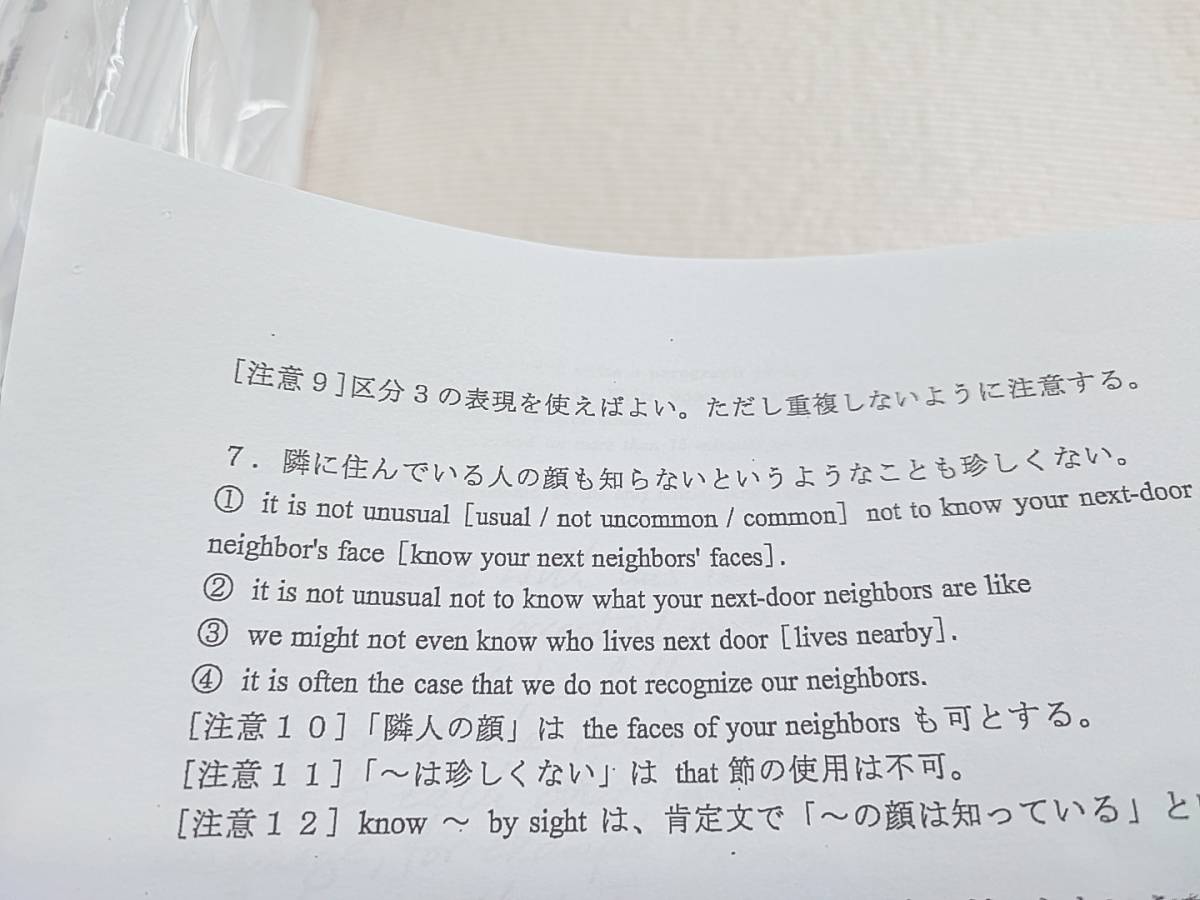 ［注意９］区分３の表現を使えばよい。ただし重複しないように注意する。
７．隣に住んでいる人の顔も知らないというようなことも珍しくない。
① it is not unusual［usual / not uncommon / common］ not to know your next-door
neighbor's face［know your next neighbors' faces］.
② it is not unusual not to know what your next-door neighbors are like
③ we might not even know who lives next door［lives nearby］.
④ it is often the case that we do not recognize our neighbors.
［注意１０］「隣人の顔」は the faces of your neighbors も可とする。
［注意１１］「～は珍しくない」は that 節の使用は不可。
［注意１２］know ～ by sight は、肯定文で「～の顔は知っている」と